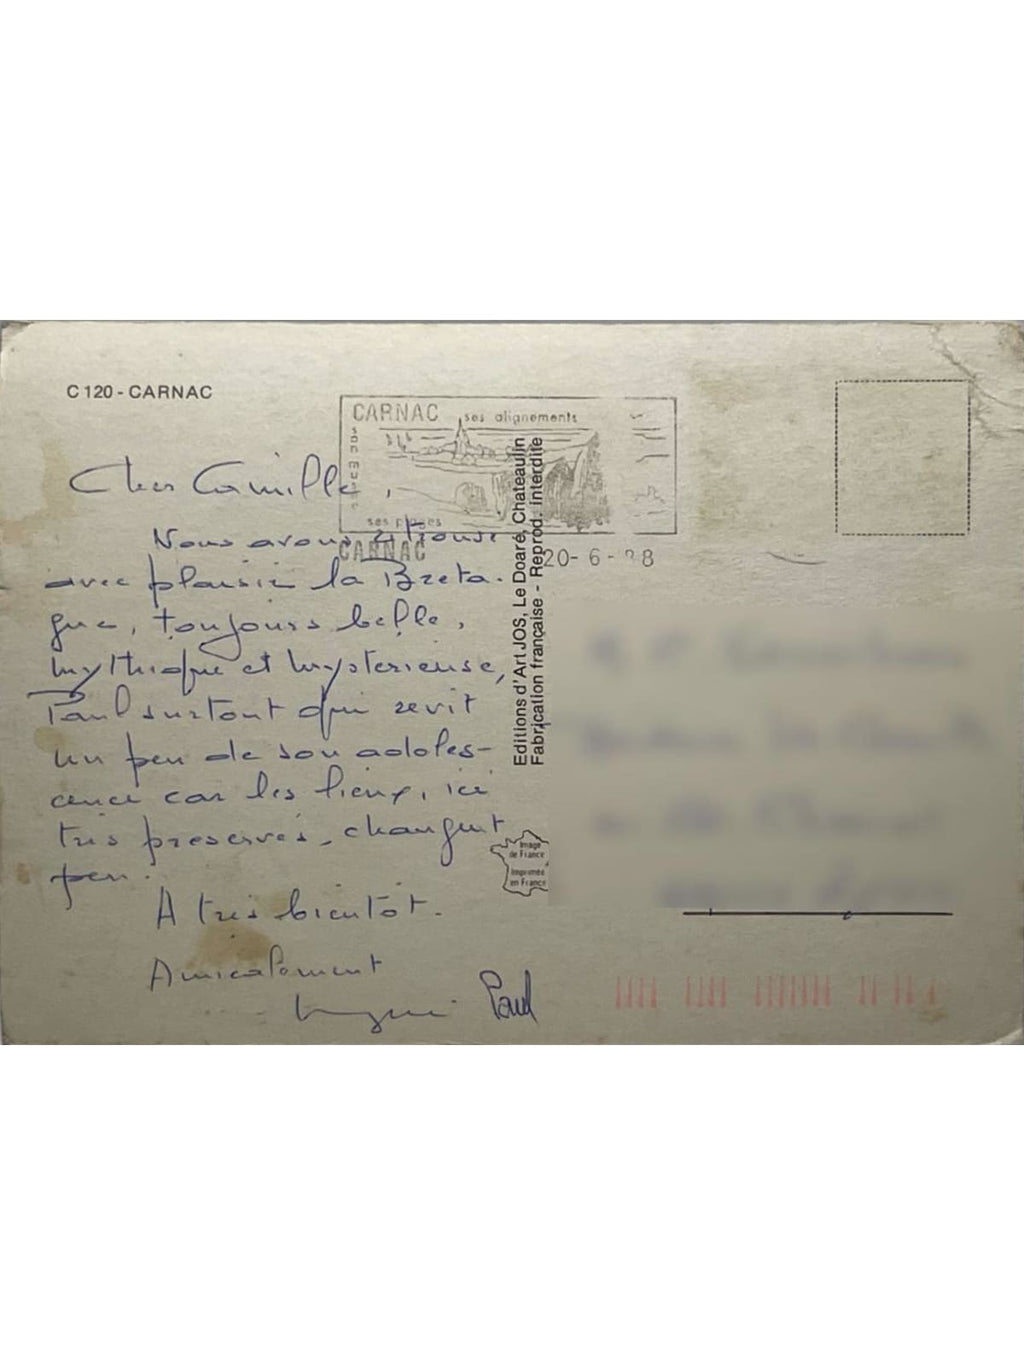 C 120 - CARNAC
CARNAC ses alignements
son musée
ses plages
CARNAC
20-6-88
Cher Camille,
Nous avons retrouvé
avec plaisir la Breta-
gne, toujours belle,
mythique et mystérieuse,
Paul surtout qui revit
un peu de son adoles-
cence car les lieux, ici
très préservés, changent
peu.
A très bientôt.
Amicalement
Paul
Editions d'Art JOS, Le Doaré, Chateaulin
Fabrication française - Reprod. interdite
Image
de France
Imprimée
en France